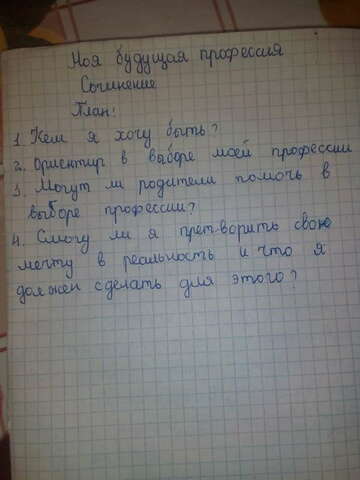 Моя будущая профессия
Сочинение
План:
1. Кем я хочу быть?
2. Ориентир в выборе моей профессии
3. Могут ли родители помочь в
выборе профессии?
4. Смогу ли я претворить свою
мечту в реальность и что я
должен сделать для этого?